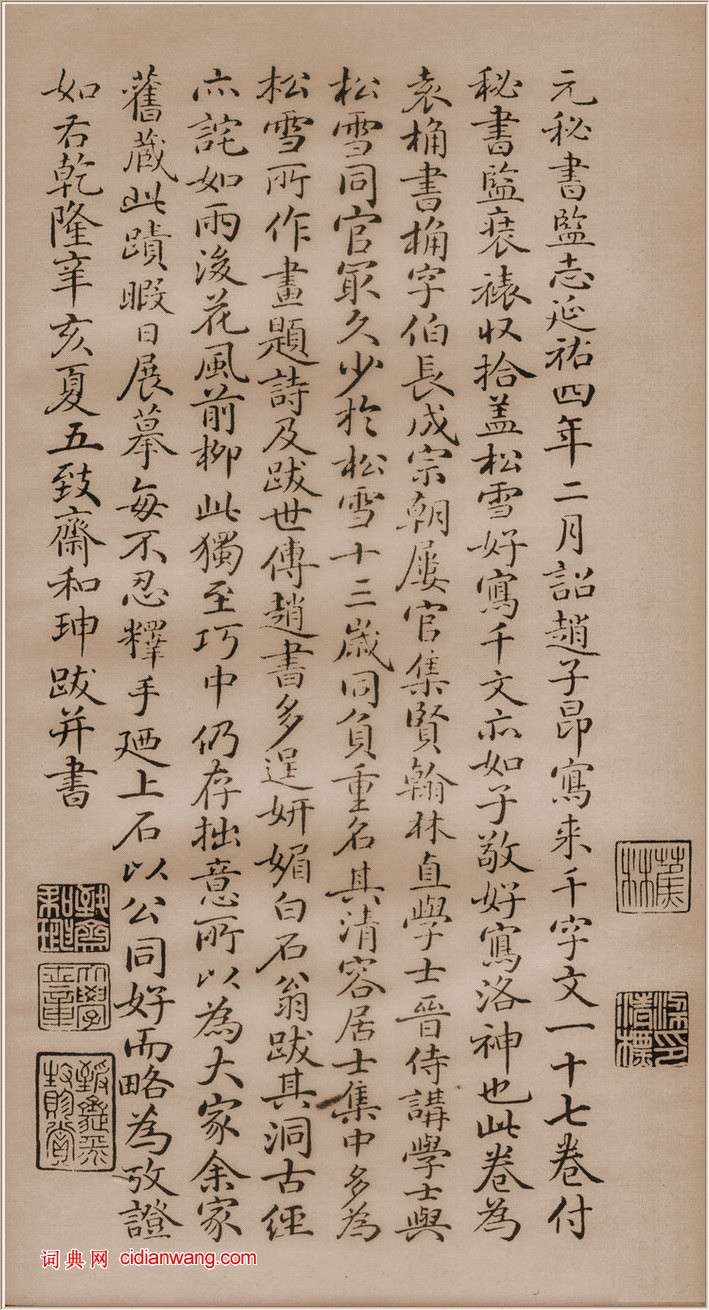 元秘書監志延祐四年二月詔趙子昂寫来千字文一十七卷付
秘書監裒裱収拾盖松雪好寫千文亦如子敬好寫洛神也此卷為
袁桷書桷字伯長成宗朝屢官集賢翰林直學士晉侍講學士與
松雪同官冣久少於松雪十三歲同負重名其清容居士集中多為
松雪所作畫題詩及跋世傳趙書多逞妍媚白石翁跋其洞古經
亦詫如雨後花風前柳此獨至巧中仍存拙意所以為大家余家
舊蔵此蹟暇日展摹每不忍釋手廼上石以公同好而略為攷證
如右乾隆辛亥夏五致齋和珅跋并書
蕉林
致齋和珅
大學士章
词典网 cidianwang.com